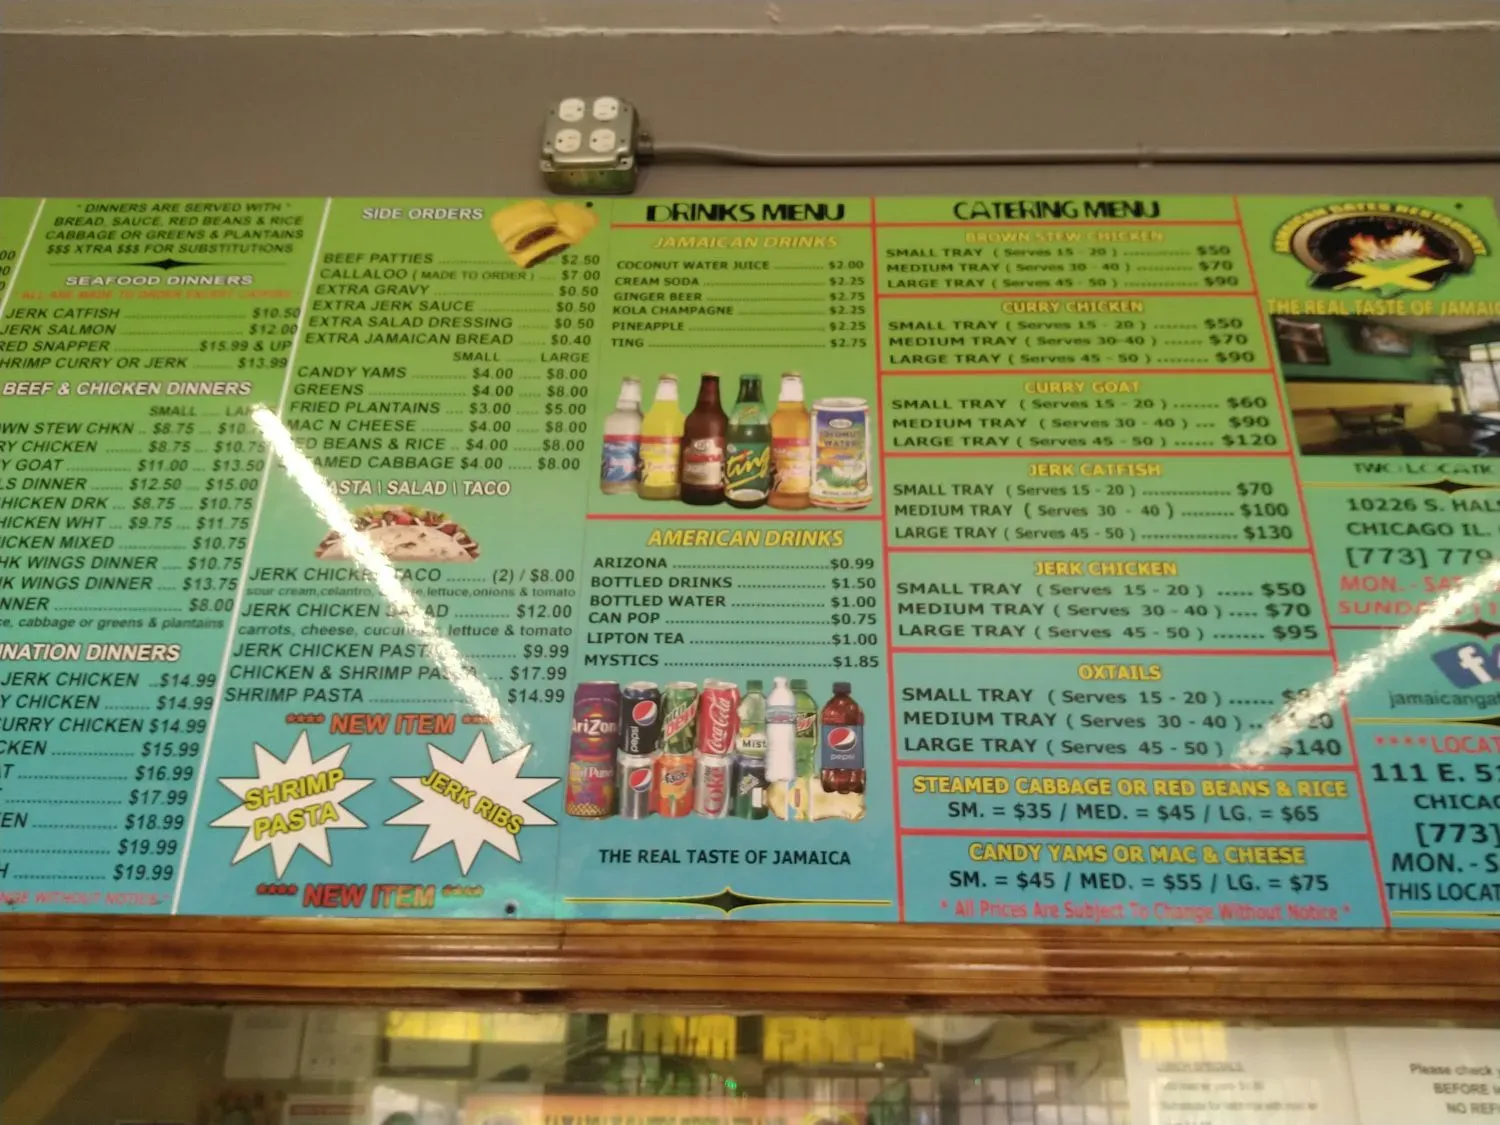 " DINNERS ARE SERVED WITH "
BREAD, SAUCE, RED BEANS & RICE
CABBAGE OR GREENS & PLANTAINS
$$$ XTRA $$$ FOR SUBSTITUTIONS
SEAFOOD DINNERS
ALL ARE MADE TO ORDER EXCEPT CATFISH
JERK CATFISH $10.50
JERK SALMON $12.00
RED SNAPPER $15.99 & UP
HRIMP CURRY OR JERK $13.99
BEEF & CHICKEN DINNERS
SMALL
WN STEW CHKN $8.75
RY CHICKEN $8.75 $10.75
Y GOAT $11.00 $13.50
LS DINNER $12.50 $15.00
HICKEN DRK $8.75 $10.75
HICKEN WHT $9.75 $11.75
ICKEN MIXED $10.75
HK WINGS DINNER $10.75
HK WINGS DINNER $13.75
NNER $8.00
ce, cabbage or greens & plantains
NATION DINNERS
JERK CHICKEN $14.99
Y CHICKEN $14.99
CURRY CHICKEN $14.99
CKEN $15.99
AT $16.99
$17.99
EN $18.99
$19.99
H $19.99
NGE WITHOUT NOTICE "
SIDE ORDERS
BEEF PATTIES $2.50
CALLALOO ( MADE TO ORDER ) $7.00
EXTRA GRAVY $0.50
EXTRA JERK SAUCE $0.50
EXTRA SALAD DRESSING $0.50
EXTRA JAMAICAN BREAD $0.40
SMALL LARGE
CANDY YAMS $4.00 $8.00
GREENS $4.00 $8.00
FRIED PLANTAINS $3.00 $5.00
MAC N CHEESE $4.00 $8.00
ED BEANS & RICE $4.00 $8.00
EAMED CABBAGE $4.00 $8.00
ASTA \ SALAD \ TACO
JERK CHICKEN TACO (2) / $8.00
sour cream,celantro, lettuce,onions & tomato
JERK CHICKEN SALAD $12.00
carrots, cheese, cucumber, lettuce & tomato
JERK CHICKEN PASTA $9.99
CHICKEN & SHRIMP PASTA $17.99
SHRIMP PASTA $14.99
**** NEW ITEM ****
SHRIMP
PASTA
JERK RIBS
**** NEW ITEM ****
DRINKS MENU
JAMAICAN DRINKS
COCONUT WATER JUICE $2.00
CREAM SODA $2.25
GINGER BEER $2.75
KOLA CHAMPAGNE $2.25
PINEAPPLE $2.25
TING $2.75
Ting
COCONUT
WATER
AMERICAN DRINKS
ARIZONA $0.99
BOTTLED DRINKS $1.50
BOTTLED WATER $1.00
CAN POP $0.75
LIPTON TEA $1.00
MYSTICS $1.85
AriZona
pepsi
Coca-Cola
Mist
pepsi
Fanta
COKE
THE REAL TASTE OF JAMAICA
CATERING MENU
BROWN STEW CHICKEN
SMALL TRAY ( Serves 15 - 20 ) $50
MEDIUM TRAY ( Serves 30 - 40 ) $70
LARGE TRAY ( Serves 45 - 50 ) $90
CURRY CHICKEN
SMALL TRAY ( Serves 15 - 20 ) $50
MEDIUM TRAY ( Serves 30-40 ) $70
LARGE TRAY ( Serves 45 - 50 ) $90
CURRY GOAT
SMALL TRAY ( Serves 15 - 20 ) $60
MEDIUM TRAY ( Serves 30 - 40 ) $90
LARGE TRAY ( Serves 45 - 50 ) $120
JERK CATFISH
SMALL TRAY ( Serves 15 - 20 ) $70
MEDIUM TRAY ( Serves 30 - 40 ) $100
LARGE TRAY ( Serves 45 - 50 ) $130
JERK CHICKEN
SMALL TRAY ( Serves 15 - 20 ) $50
MEDIUM TRAY ( Serves 30 - 40 ) $70
LARGE TRAY ( Serves 45 - 50 ) $95
OXTAILS
SMALL TRAY ( Serves 15 - 20 )
MEDIUM TRAY ( Serves 30 - 40 )
LARGE TRAY ( Serves 45 - 50 ) $140
STEAMED CABBAGE OR RED BEANS & RICE
SM. = $35 / MED. = $45 / LG. = $65
CANDY YAMS OR MAC & CHEESE
SM. = $45 / MED. = $55 / LG. = $75
* All Prices Are Subject To Change Without Notice *
JAMAICAN GATES RESTAURANT
THE REAL TASTE OF JAMAIC
TWO LOCATIO
10226 S. HALS
CHICAGO IL.
[773] 779
MON. - SAT
SUNDAY 1
f
jamaicangat
****LOCAT
111 E. 51
CHICAG
[773]
MON. - S
THIS LOCAT
LUNCH SPECIALS
Please check y
BEFORE
NO REF